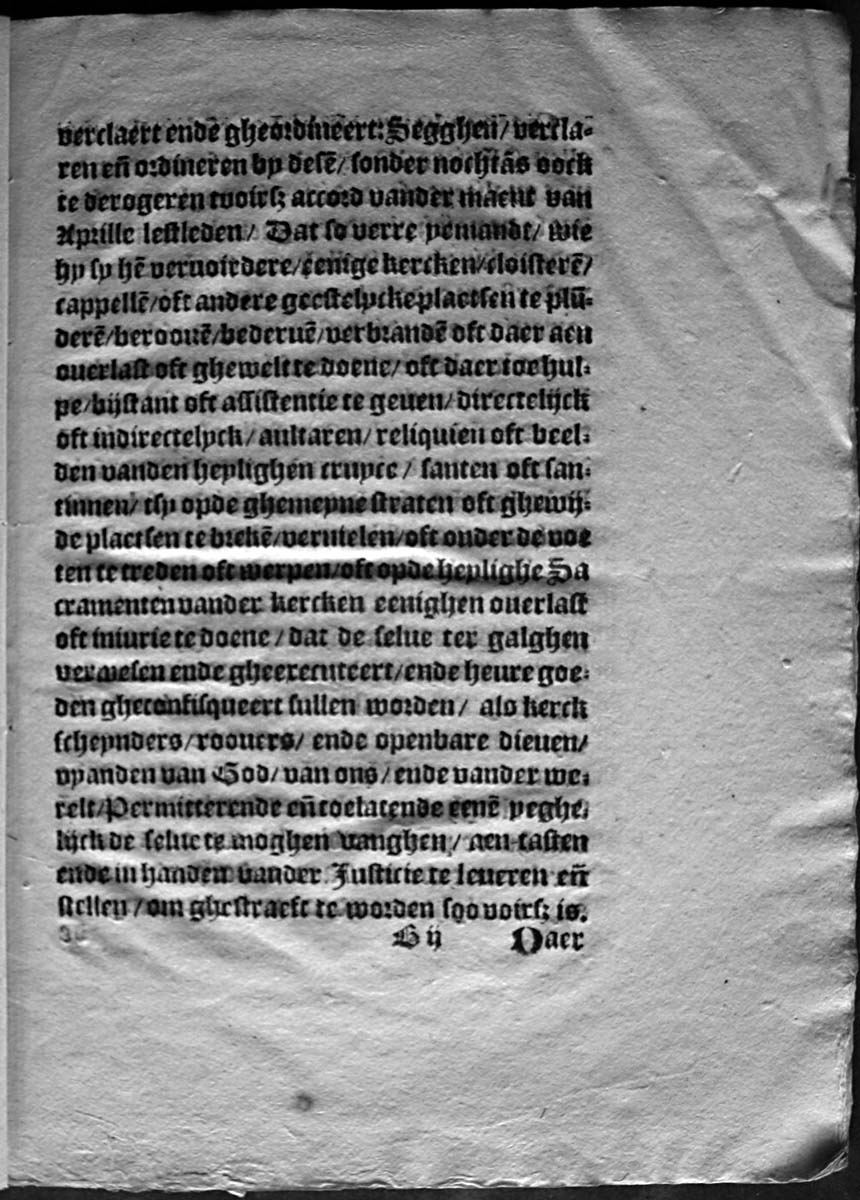 verclaert ende gheordineert: Segghen/ vercla-
ren eñ ordineren by desē/ sonder nochtās oock
te derogeren tvoirsz accord vander maent van
Aprille lestleden/ Dat so verre yemandt/ wie
hy sy hē vervoirdere/ eenige kercken/ cloisterē/
cappellē/ oft andere geestelycke plaetsen te plū-
derē/ berouuē/ bederuē/ verbrandē oft daer aen
ouerlast oft ghewelt te doene/ oft daer toe hul-
pe/ bijstant oft assistentie te geuen/ directelijck
oft indirectelyck/ aultaren/ reliquien oft beel-
den vanden heylighen cruyce/ santen oft san-
tinnen/ tsy opde ghemeyne straten oft ghewij-
de plaetsen te brekē/ vernielen/ oft onder de voe
ten te treden oft werpen/ oft opde heylighe Sa
cramenten vander kercken eenighen ouerlast
oft iniurie te doene/ dat de selue ter galghen
verwesen ende gheexecuteert/ ende heure goe-
den gheconfisqueert sullen worden/ als kerck
scheynders/ roouers/ ende openbare dieuen/
vyanden van God/ van ons/ ende vander we-
relt/ Permitterende eñ toelatende eenē yeghe-
lijck de selue te moghen vanghen/ aen tasten
ende in handen vander Justicie te leueren eñ
stellen/ om ghestraeft te worden soo voirsz is.
B ij Daer